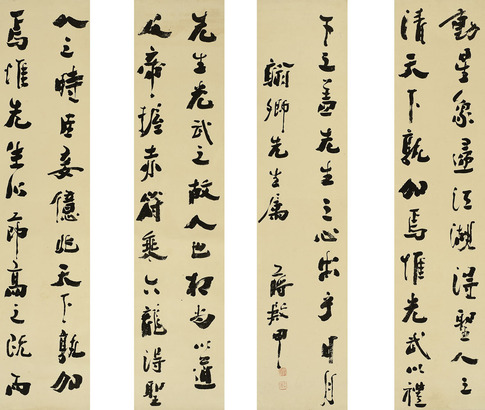 先生光武之故人也相尚以道
及帝握赤符乘六龍得聖
人之時臣妾億兆天下孰加
焉惟先生以節高之既而
動星象歸江湖得聖人之
清天下孰加焉惟光武以禮
下之蓋先生之心出乎日月
翰卿先生属
蔣殿甲